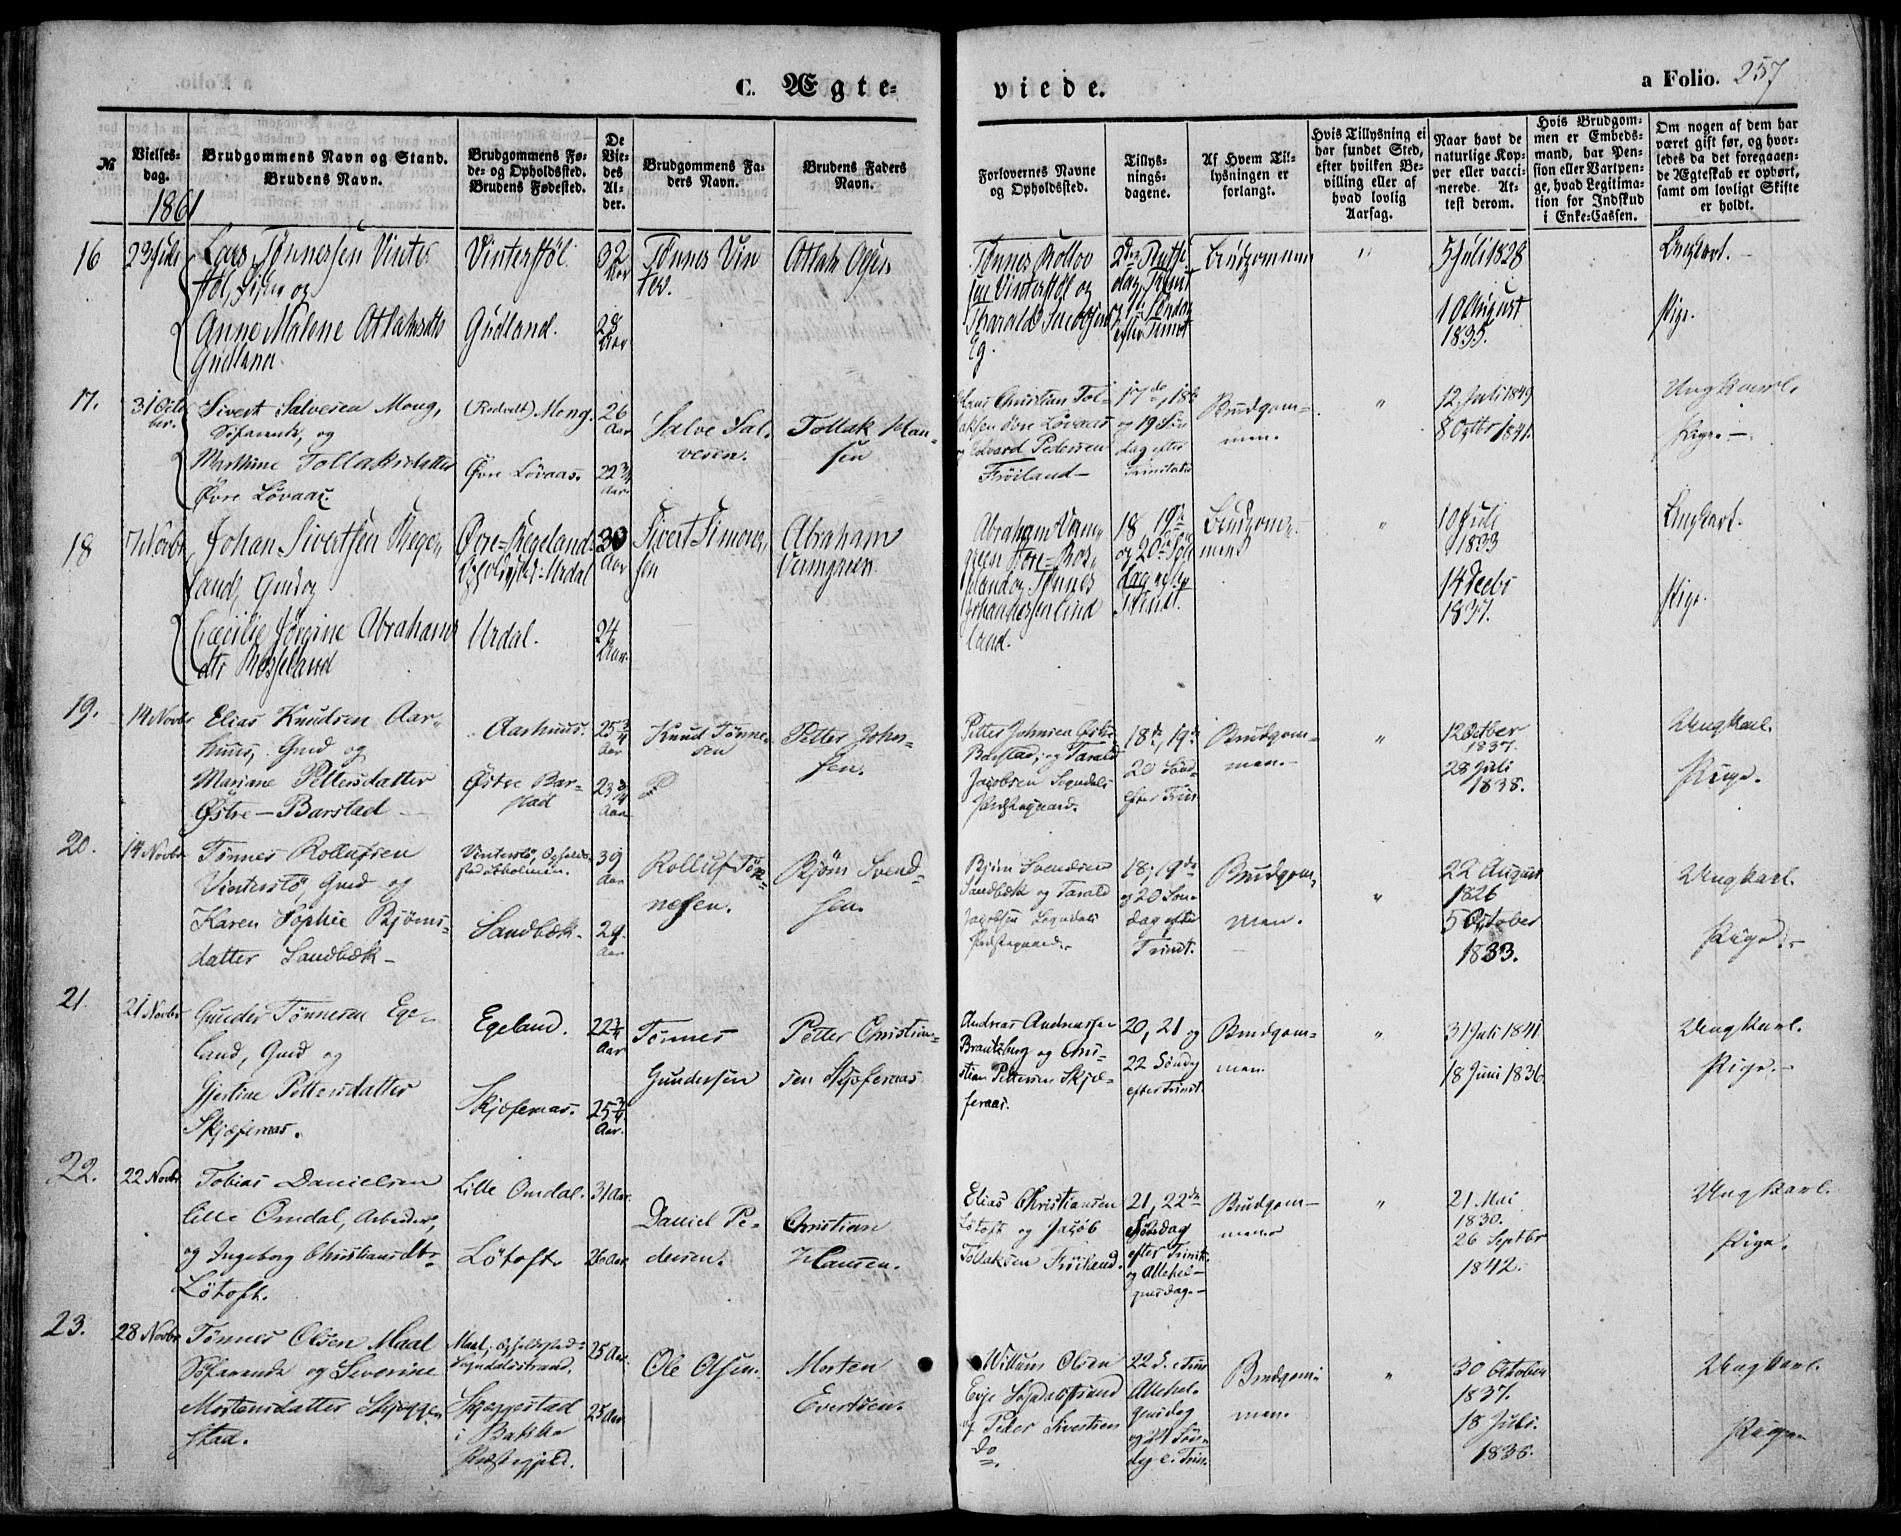 C. Ægte-
viede.
a Folio. 257
№
Vielses-
dag.
1861
Brudgommens Navn og Stand.
Brudens Navn.
Brudgommens Fø-
de- og Opholdssted.
Brudens Fødested.
De
Vie-
des
Al-
der.
Brudgommens Fa-
ders Navn.
Brudens Faders
Navn.
Forlovernes Navne
og Opholdssted.
Tillys-
nings-
dagene.
Af Hvem Til-
lysningen er
forlangt.
Hvis Tillysning ei
har fundet Sted,
efter hvilken Be-
villing eller af
hvad lovlig
Aarsag.
Naar havt de
naturlige Kop-
per eller vacci-
nerede. At-
test derom.
Hvis Brudgom-
men er Embeds-
mand, har Pen-
sion eller Vartpen-
ge, hvad Legitima-
tion for Indskud
i Enke-Cassen.
Om nogen af dem har
været gift før, og hvor-
ledes da det foregaaen-
de Ægteskab er ophørt,
samt om lovligt Skifte
er holdt.
16
Lars Tønnessen Vinter
støl, og
Anne Malene Ottaksdtr
Gudland
Vinterstøl
Gudland.
32
Aar
28
Aar
Tønnes Vin
Ottak
Tønnes Rollov
sen Vinterstøl og
Tharald Jacobsen
Eg.
Brudgommen
"
5 Juli 1828
10 August
1835.
Ungkarl.
Pige.
17.
31 Octo
ber.
Sivert Salvesen Mong,
Søfarende, og
Marthine Tollaksdatter
Øvre Løvaas.
(Rodvelt) Mong.
Øvre Løvaas.
26
Aar
22 3/4
Aar
Salve Sal-
vesen.
Tollak Han-
sen
Hans Christian Tol-
laksen Øvre Løvaas
og Edvard Pedersen
Frøiland
17de, 18d
og 19 Søn
dag efter
Trinitatis
Brudgom-
men.
"
12 Juli 1849
8 Octbr 1841.
Ungkarl.
Pige.
18
7 Novbr
Johan Sivertsen Rege-
land, Gmd og
Cæcilie Jørgine Abrahams
dtr Rosseland
Øvre-Regeland
Opholdssted Urdal
Urdal.
30
Aar
24
Aar.
Sivert Simon-
sen
Abraham
Abraham
og Tønnes
18 19de
og 20de Søn
dag efter
Trinit.
Brudgom-
men
"
10 Juli
1833
14 Decbr
1837.
Ungkarl.
Pige.
19.
14 Novbr
Elias Knudsen Aar-
huus, Gmd og
Mariane Pettersdatter
Østre-Barstad
Aarhuus.
Østre Bar-
stad
25 3/4
Aar
23 3/4
Aar
Knud Tønne-
sen
Petter John-
sen.
Petter Johnsen Østre
Barstad, og Tarald
Jacobsen Sogndals
Præstegaard.
18de, 19de
20 Sønd
efter Trin.
Brudgom-
men.
"
12 Octber
1837.
28 Juli
1838.
Ungkarl.
Pige.
20.
14 Novbr
Tønnes Rollufsen
Vinterstø Gmd og
Karen Sophie Bjørns-
datter Sandbæk
Vinterstø, Opholds-
sted
Sandbæk.
39
Aar
29.
Aar
Rolluf Tøn-
nesen.
Bjørn Svend-
sen.
Bjørn Svendsen
Sandbæk og Tarald
Jacobsen Sogndals
Præstegaard.
18, 19de
og 20 Søn-
dag efter
Trinit.
Brudgom-
men.
"
22 August
1826
5 October
1833.
Ungkarl.
Pige.
21.
21 Novbr
Gunder Tønnesen Ege-
land, Gmd og
Gjertine Pettersdatter
Skjøferaas.
Egeland.
Skjøferaas.
22 3/4
Aar
25 3/4
Aar.
Tønnes
Gundersen
Petter Christian-
sen Skjøferaas
Andreas Andreassen
Brautsberg og Chri-
stian Pettersen Skjø-
feraas.
20, 21 og
22 Søndag
efter Trinit.
Brudgom-
men
"
31 Juli 1841
18 Juni 1836
Ungkarl.
Pige.
22.
22 Novbr
Tobias Danielsen
lille Omdal, Arbeider,
og Ingeborg Christiansdtr
Løtoft.
Lille Omdal.
Løtoft
31 Aar.
26 Aar.
Daniel Pe-
dersen.
Christian
Hansen.
Elias Christiansen
Løtoft og Jacob
Tollaksen Frøiland.
21, 22de
Søndag
efter Trinit.
og Allehel-
gensdag.
Brudgom-
men
"
21 Mai
1830.
26 Septbr
1842.
Ungkarl.
Pige.
23.
28 Novbr
Tønnes Olsen Maal
Søfarende og Severine
Mortensdatter Skjeggen
stad.
Maal, Opholdssted
Sogndalsstrand.
Skjeggestad
i Bakke
Præstegjeld.
25 Aar.
25 Aar
Ole Olsen.
Morten
Evertsen.
Willum Olsen
Eeje Sogndalsstrand
og Peder Sivertsen
Do
22 S. e Trin
Allehel-
gensdag
og 24 Søn-
dag e. Trin.
Brudgom-
men.
"
30 October
1837.
18 Juli.
1836.
Ungkarl.
Pige